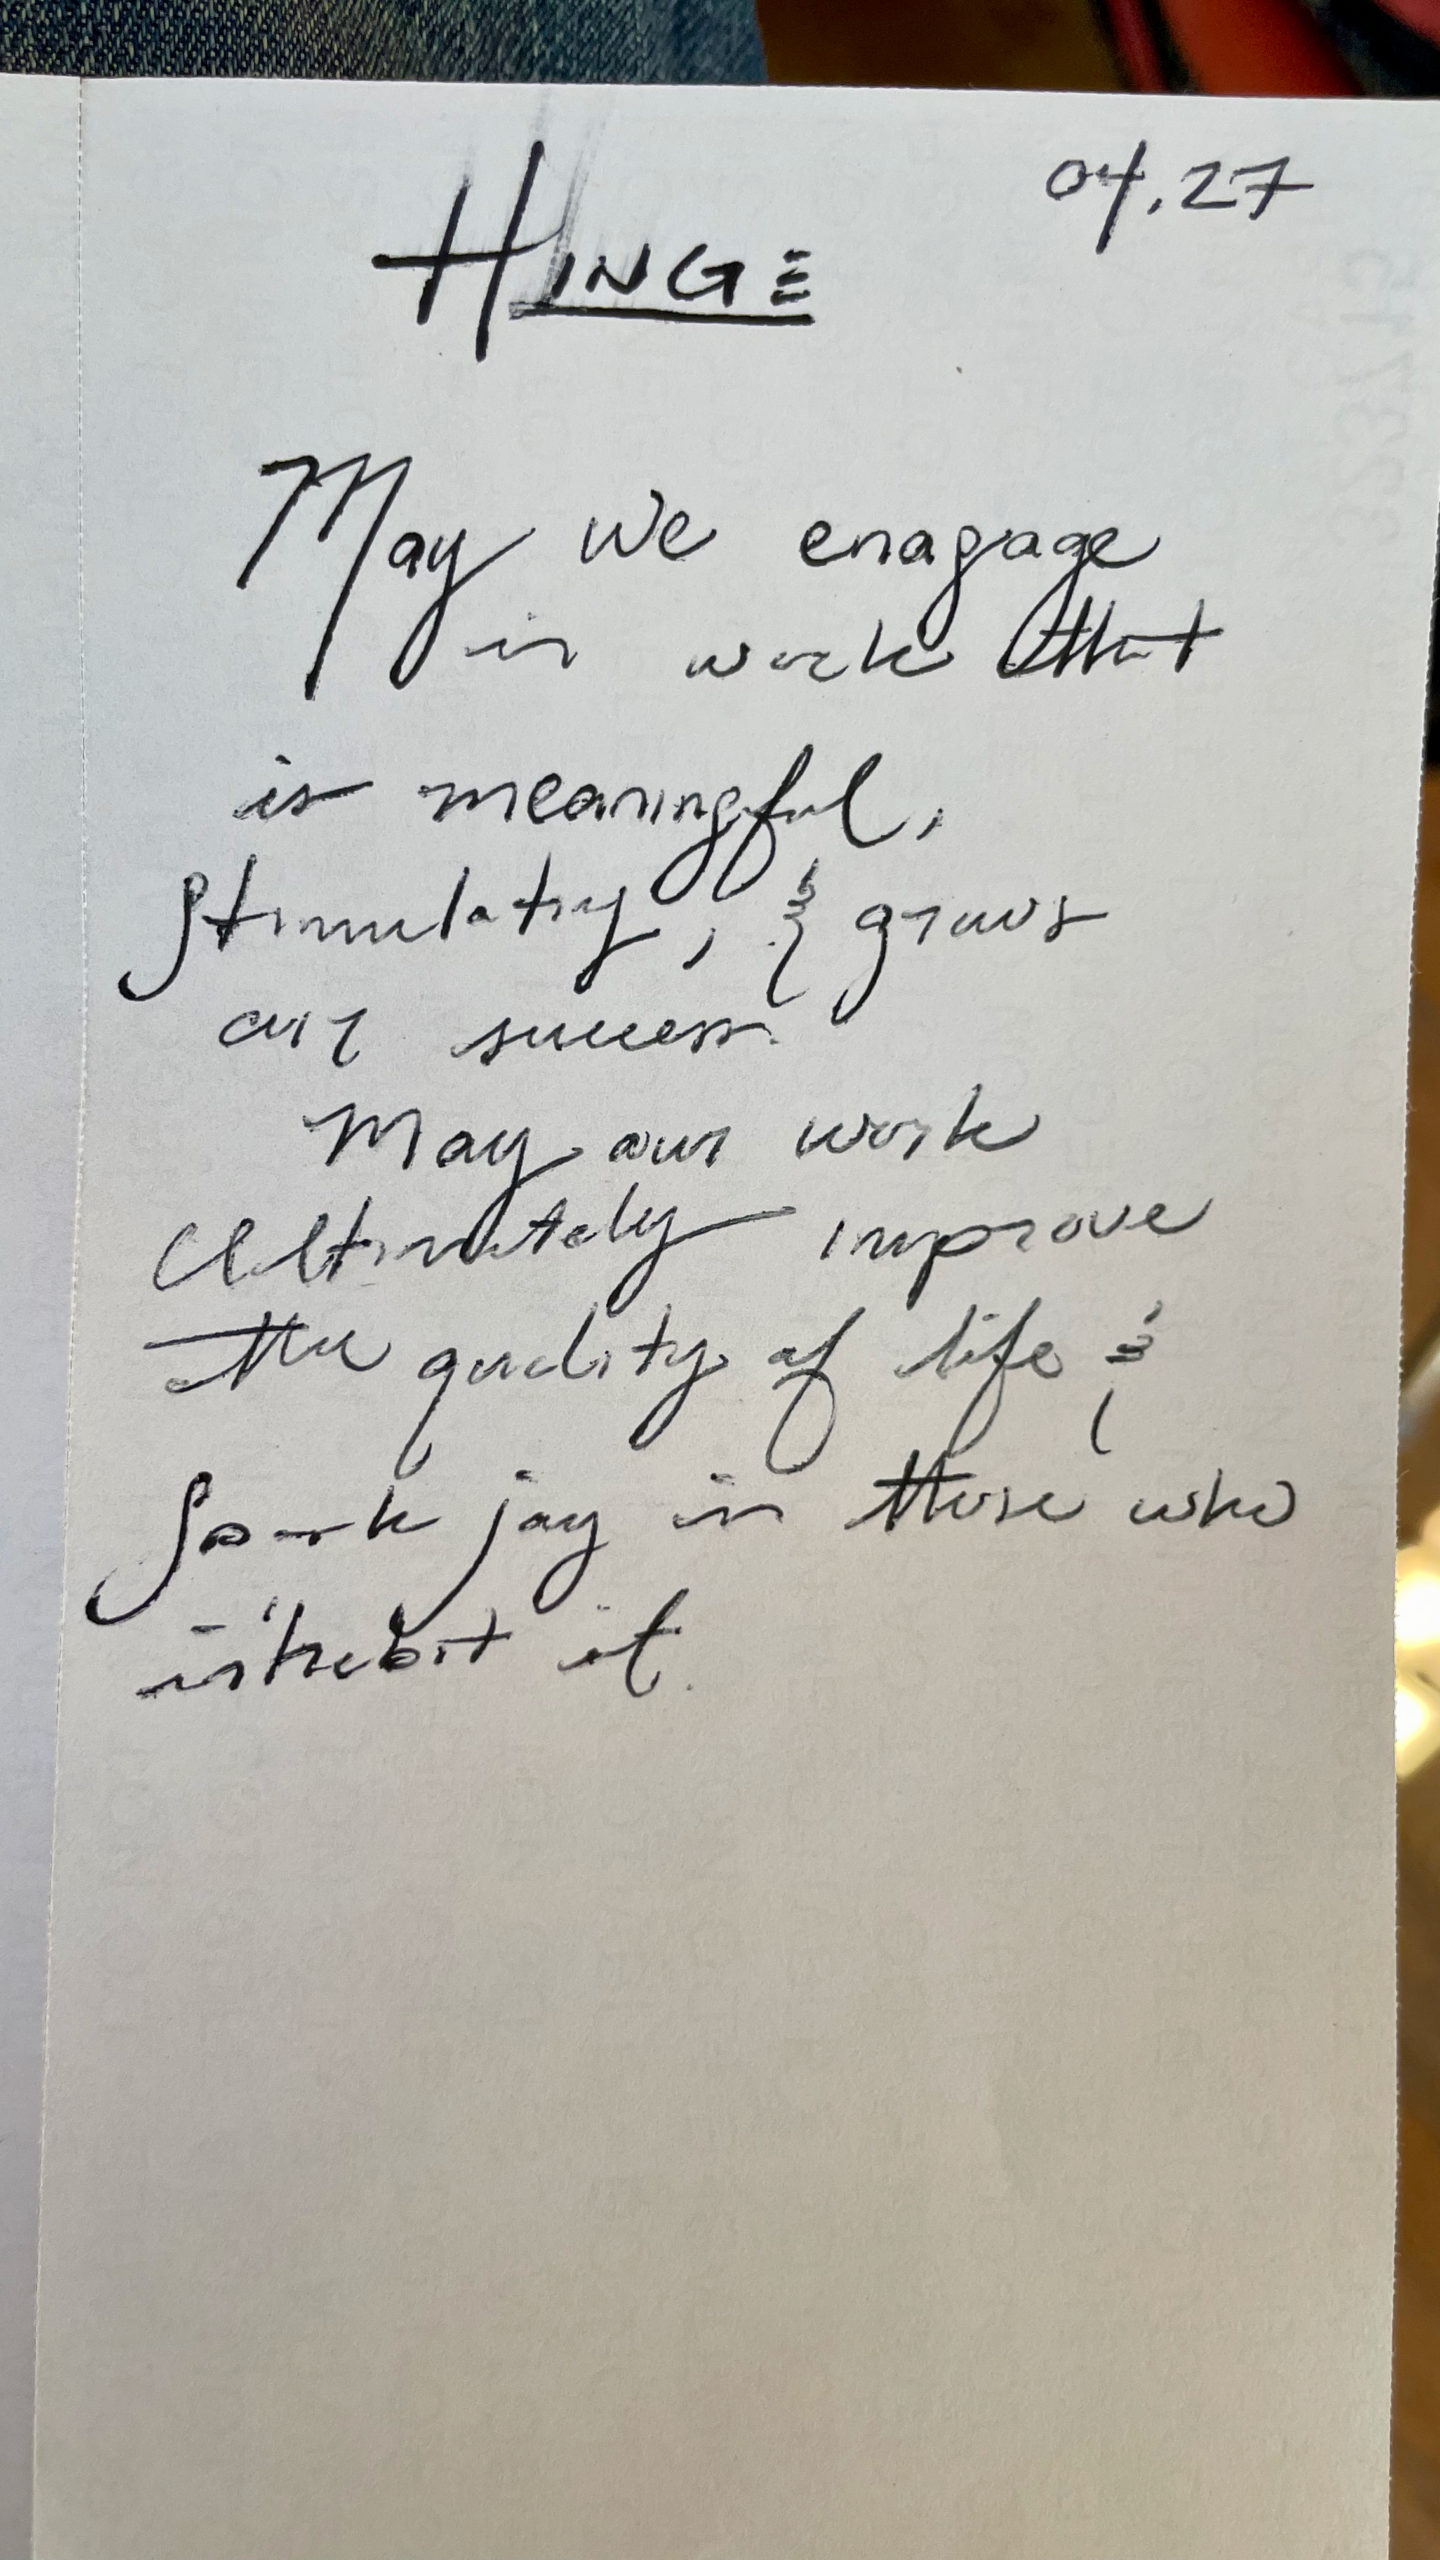 04.27
HINGE
May we enagage
in work that
is meaningful,
stimulating, & grows
our success.
May our work
Ultimately improve
the quality of life &
spark joy in those who
inhabit it.